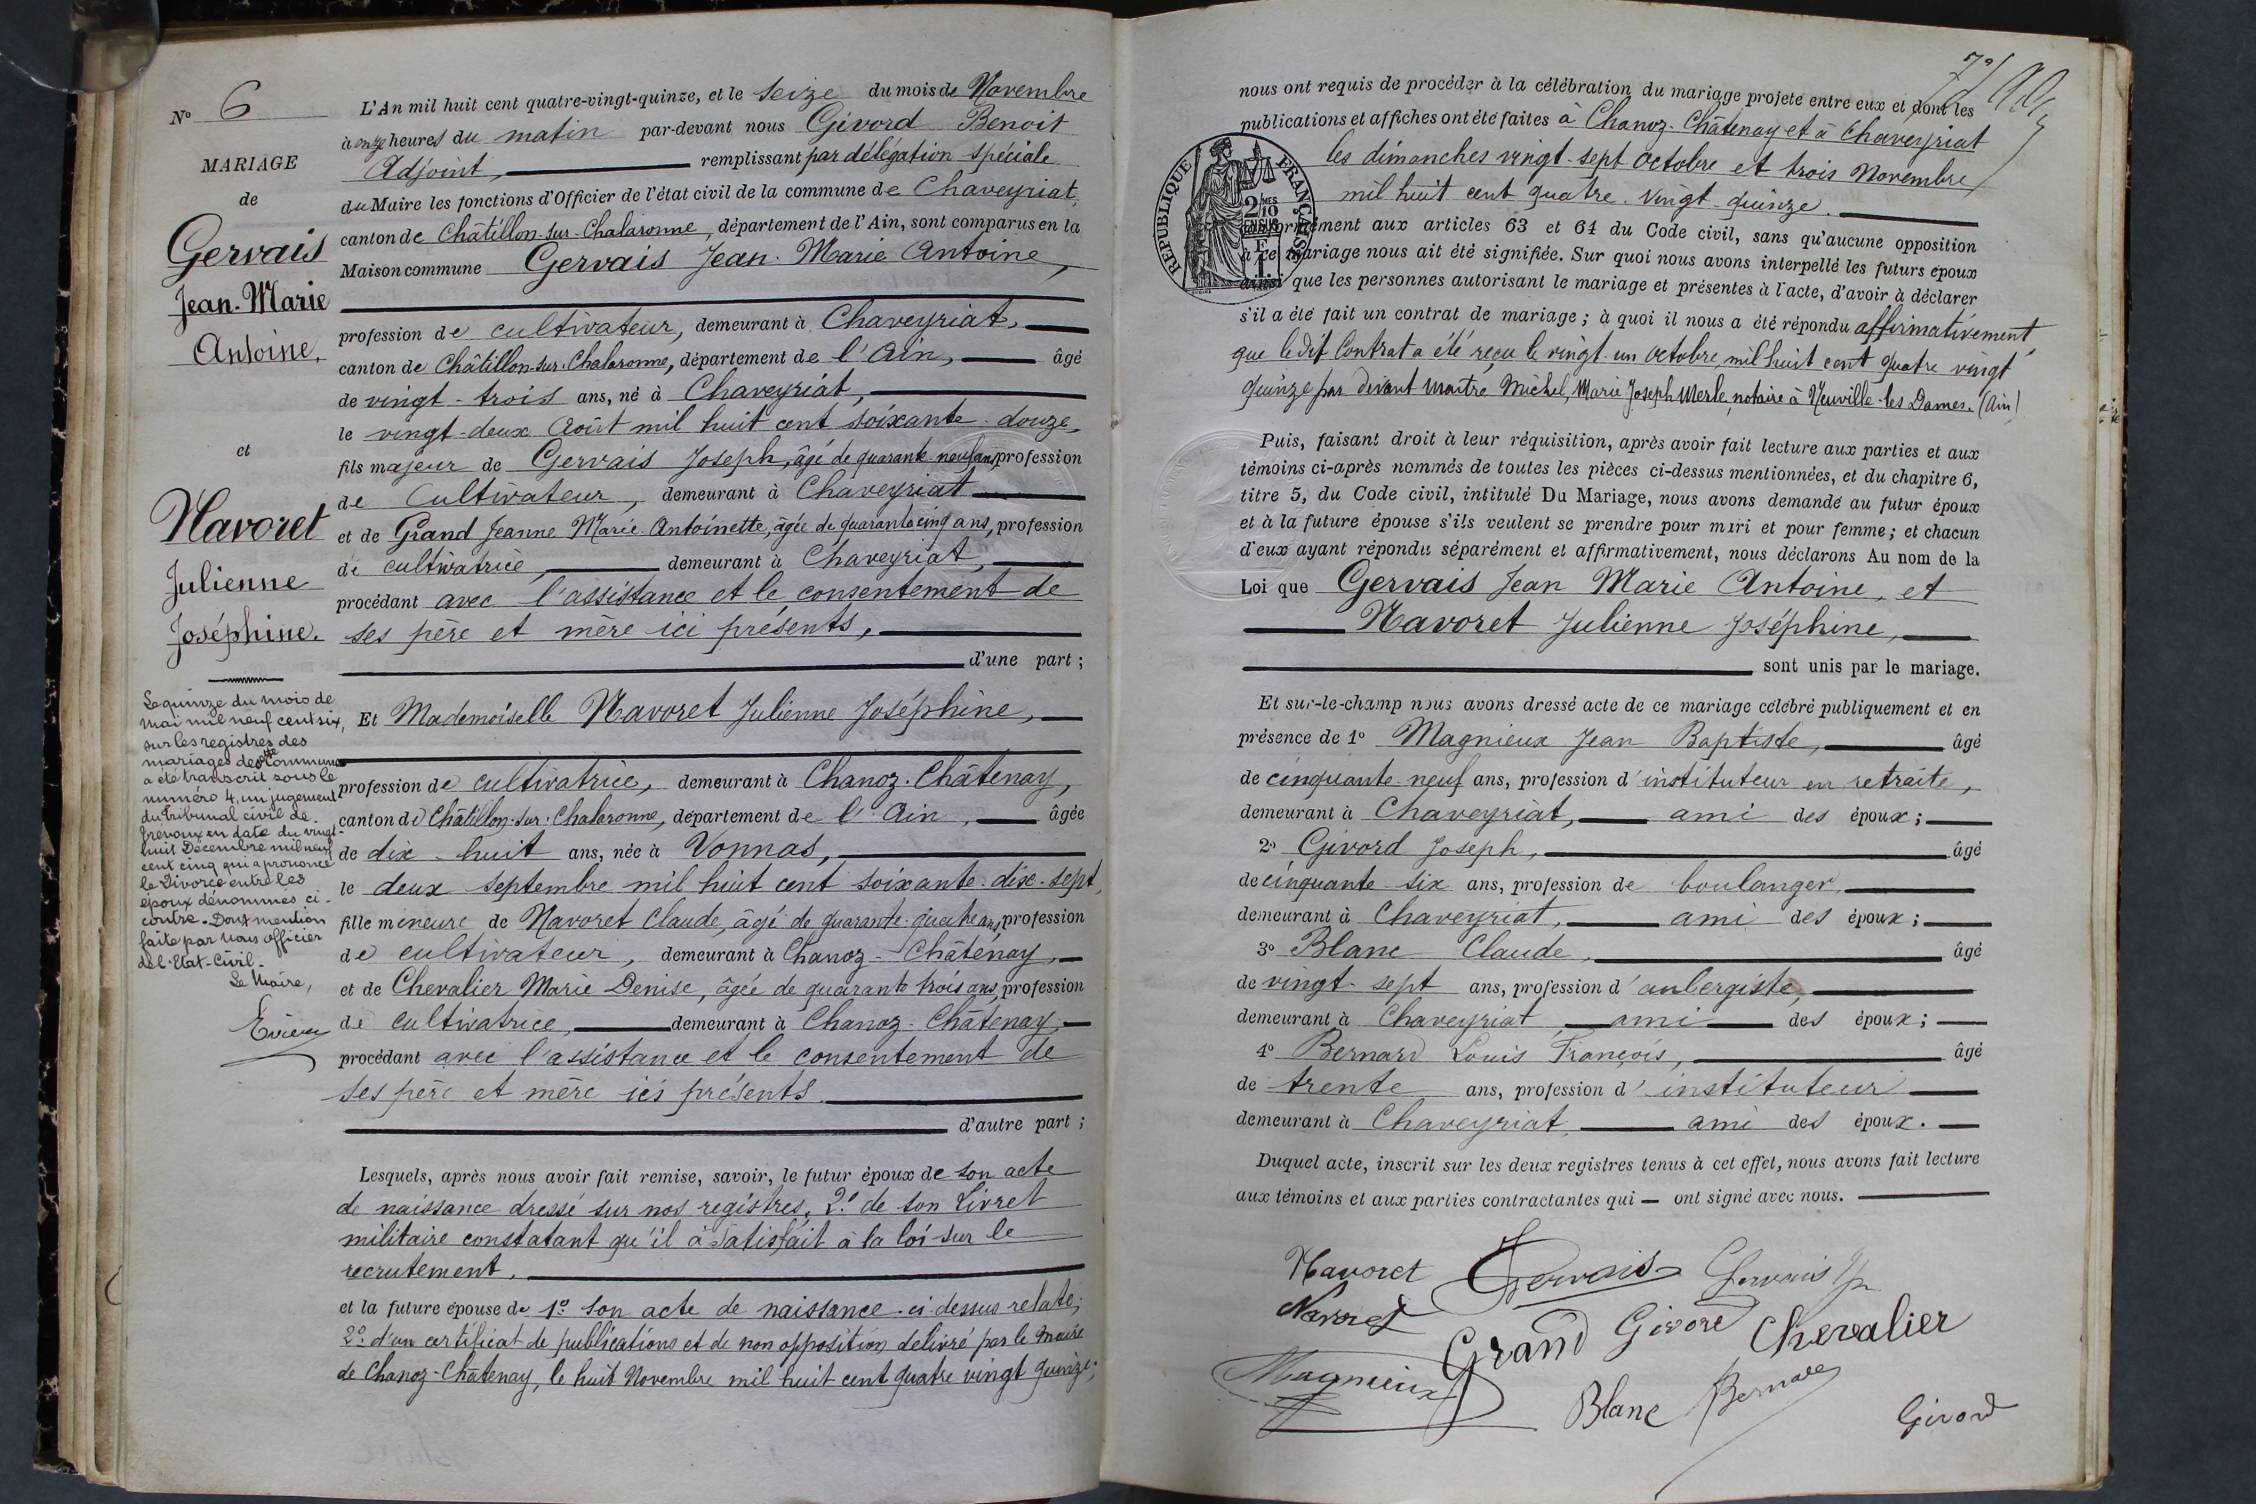 N° 6
MARIAGE
de
Gervais
Jean-Marie
Antoine,
et
Navoret
Julienne
Joséphine.
Le quinze du mois de
mai mil neuf cent six,
sur les registres des
mariages de cette commune
a été transcrit sous le
numéro 4, un jugement
du tribunal civil de
Trévoux en date du vingt-
huit Décembre mil neuf
cent cinq qui a prononcé
le Divorce entre les
époux dénommés ci-
contre. Dont mention
faite par nous officier
de l'Etat-Civil.
Le Maire,
L'An mil huit cent quatre-vingt-quinze, et le seize du mois de Novembre
à onze heures du matin par-devant nous Givord Benoit
Adjoint, remplissant par délégation spéciale
du Maire les fonctions d'Officier de l'état civil de la commune de Chaveyriat,
canton de Châtillon-sur-Chalaronne, département de l'Ain, sont comparus en la
Maison commune Gervais Jean-Marie Antoine,
profession de cultivateur, demeurant à Chaveyriat,
canton de Châtillon-sur-Chalaronne, département de l'Ain, âgé
de vingt-trois ans, né à Chaveyriat,
le vingt-deux Août mil huit cent soixante-douze,
fils majeur de Gervais Joseph, âgé de quarante-neuf ans, profession
de Cultivateur, demeurant à Chaveyriat
et de Grand Jeanne Marie Antoinette, âgée de quarante cinq ans, profession
de cultivatrice, demeurant à Chaveyriat,
procédant avec l'assistance et le consentement de
ses père et mère ici présents,
d'une part;
Et Mademoiselle Navoret Julienne Joséphine,
profession de cultivatrice, demeurant à Chanoz-Châtenay,
canton de Châtillon-sur-Chalaronne, département de l'Ain, âgée
de dix-huit ans, née à Vonnas,
le deux septembre mil huit cent soixante-dix-sept,
fille mineure de Navoret Claude, âgé de quarante-quatre ans, profession
de cultivateur, demeurant à Chanoz-Châtenay,
et de Chevalier Marie Denise, âgée de quarante trois ans, profession
de cultivatrice, demeurant à Chanoz-Châtenay,
procédant avec l'assistance et le consentement de
ses père et mère ici présents.
d'autre part;
Lesquels, après nous avoir fait remise, savoir, le futur époux de son acte
de naissance dressé sur nos registres, 2° de son Livret
militaire constatant qu'il à satisfait à la loi sur le
recrutement.
et la future épouse de 1° son acte de naissance ci-dessus relaté;
2° d'un certificat de publications et de non opposition délivré par le maire
de Chanoz-Châtenay, le huit Novembre mil huit cent quatre vingt quinze;
nous ont requis de procéder à la célébration du mariage projeté entre eux et dont les
publications et affiches ont été faites à Chanoz-Châtenay et à Chaveyriat
les dimanches vingt-sept octobre et trois Novembre
mil huit cent quatre-vingt-quinze.
RÉPUBLIQUE FRANÇAISE
2/10 MES
EN SUS
conformément aux articles 63 et 64 du Code civil, sans qu'aucune opposition
à ce mariage nous ait été signifiée. Sur quoi nous avons interpellé les futurs époux
ainsi que les personnes autorisant le mariage et présentes à l'acte, d'avoir à déclarer
s'il a été fait un contrat de mariage; à quoi il nous a été répondu affirmativement,
que ledit Contrat a été reçu le vingt-un octobre, mil huit cent quatre vingt
quinze par devant Maître Michel, Marie Joseph Merle, notaire à Neuville-les-Dames. (Ain)
Puis, faisant droit à leur réquisition, après avoir fait lecture aux parties et aux
témoins ci-après nommés de toutes les pièces ci-dessus mentionnées, et du chapitre 6,
titre 5, du Code civil, intitulé Du Mariage, nous avons demandé au futur époux
et à la future épouse s'ils veulent se prendre pour mari et pour femme; et chacun
d'eux ayant répondu séparément et affirmativement, nous déclarons Au nom de la
Loi que Gervais Jean Marie Antoine, et
Navoret Julienne Joséphine,
sont unis par le mariage.
Et sur-le-champ nous avons dressé acte de ce mariage célébré publiquement et en
présence de 1° Magnieux Jean Baptiste, âgé
de cinquante-neuf ans, profession d'instituteur en retraite,
demeurant à Chaveyriat, ami des époux;
2° Givord Joseph, âgé
de cinquante-six ans, profession de boulanger,
demeurant à Chaveyriat, ami des époux;
3° Blanc Claude, âgé
de vingt-sept ans, profession d'aubergiste,
demeurant à Chaveyriat, ami des époux;
4° Bernard Louis François, âgé
de trente ans, profession d'instituteur
demeurant à Chaveyriat, ami des époux.
Duquel acte, inscrit sur les deux registres tenus à cet effet, nous avons fait lecture
aux témoins et aux parties contractantes qui — ont signé avec nous.
Navoret Gervais Gervais
Navoret Grand Givord Chevalier
Magnieux Blanc Bernard Givord